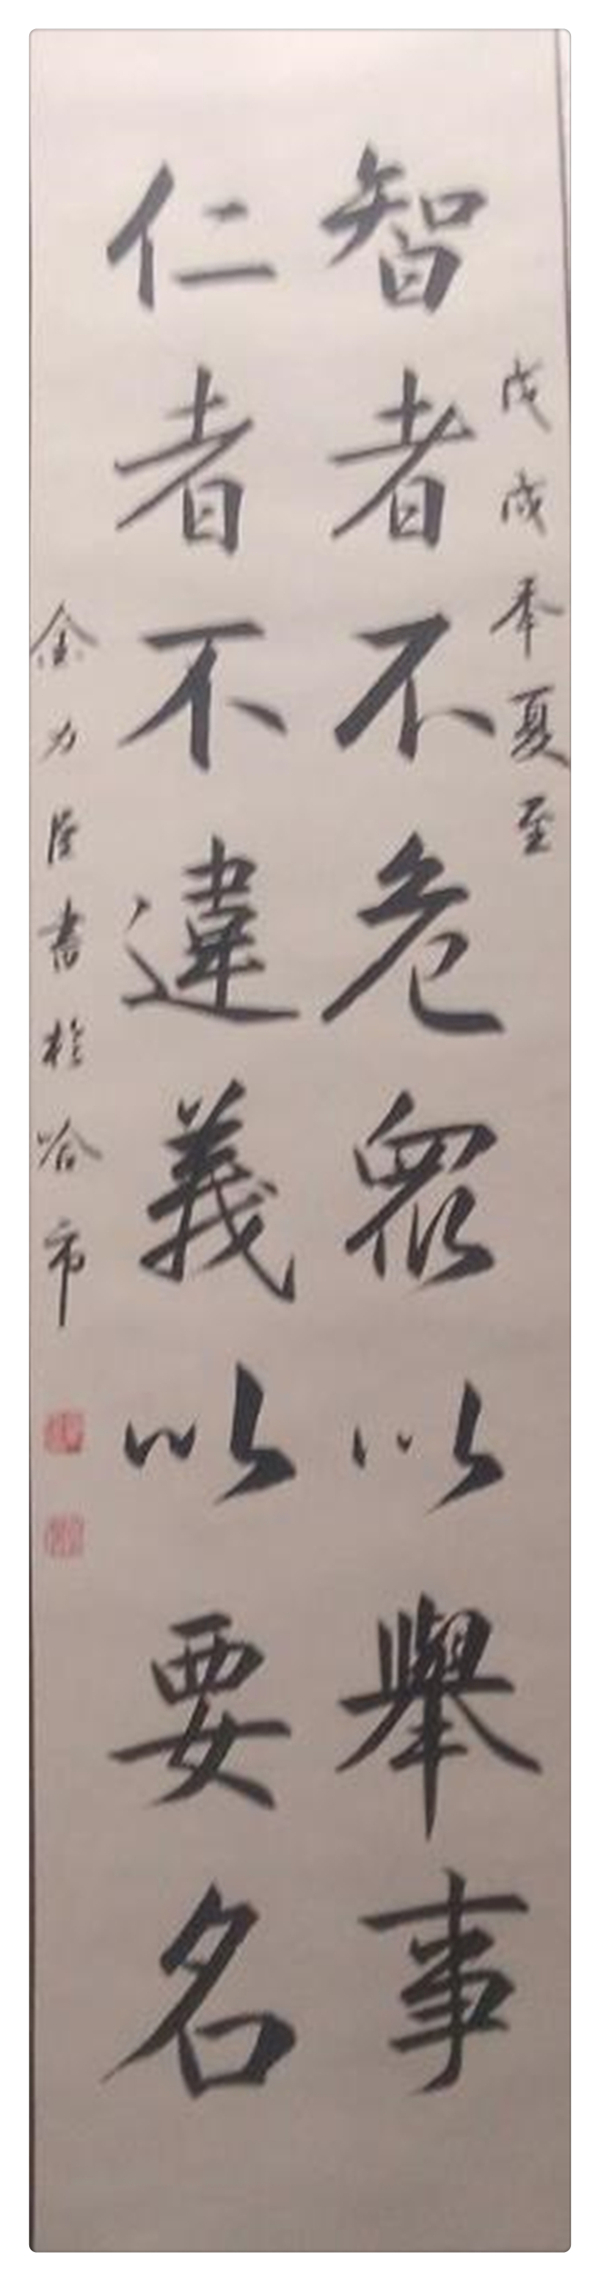 戊戌年夏至
智者不危眾以舉事
仁者不違義以要名
金力 書於哈市